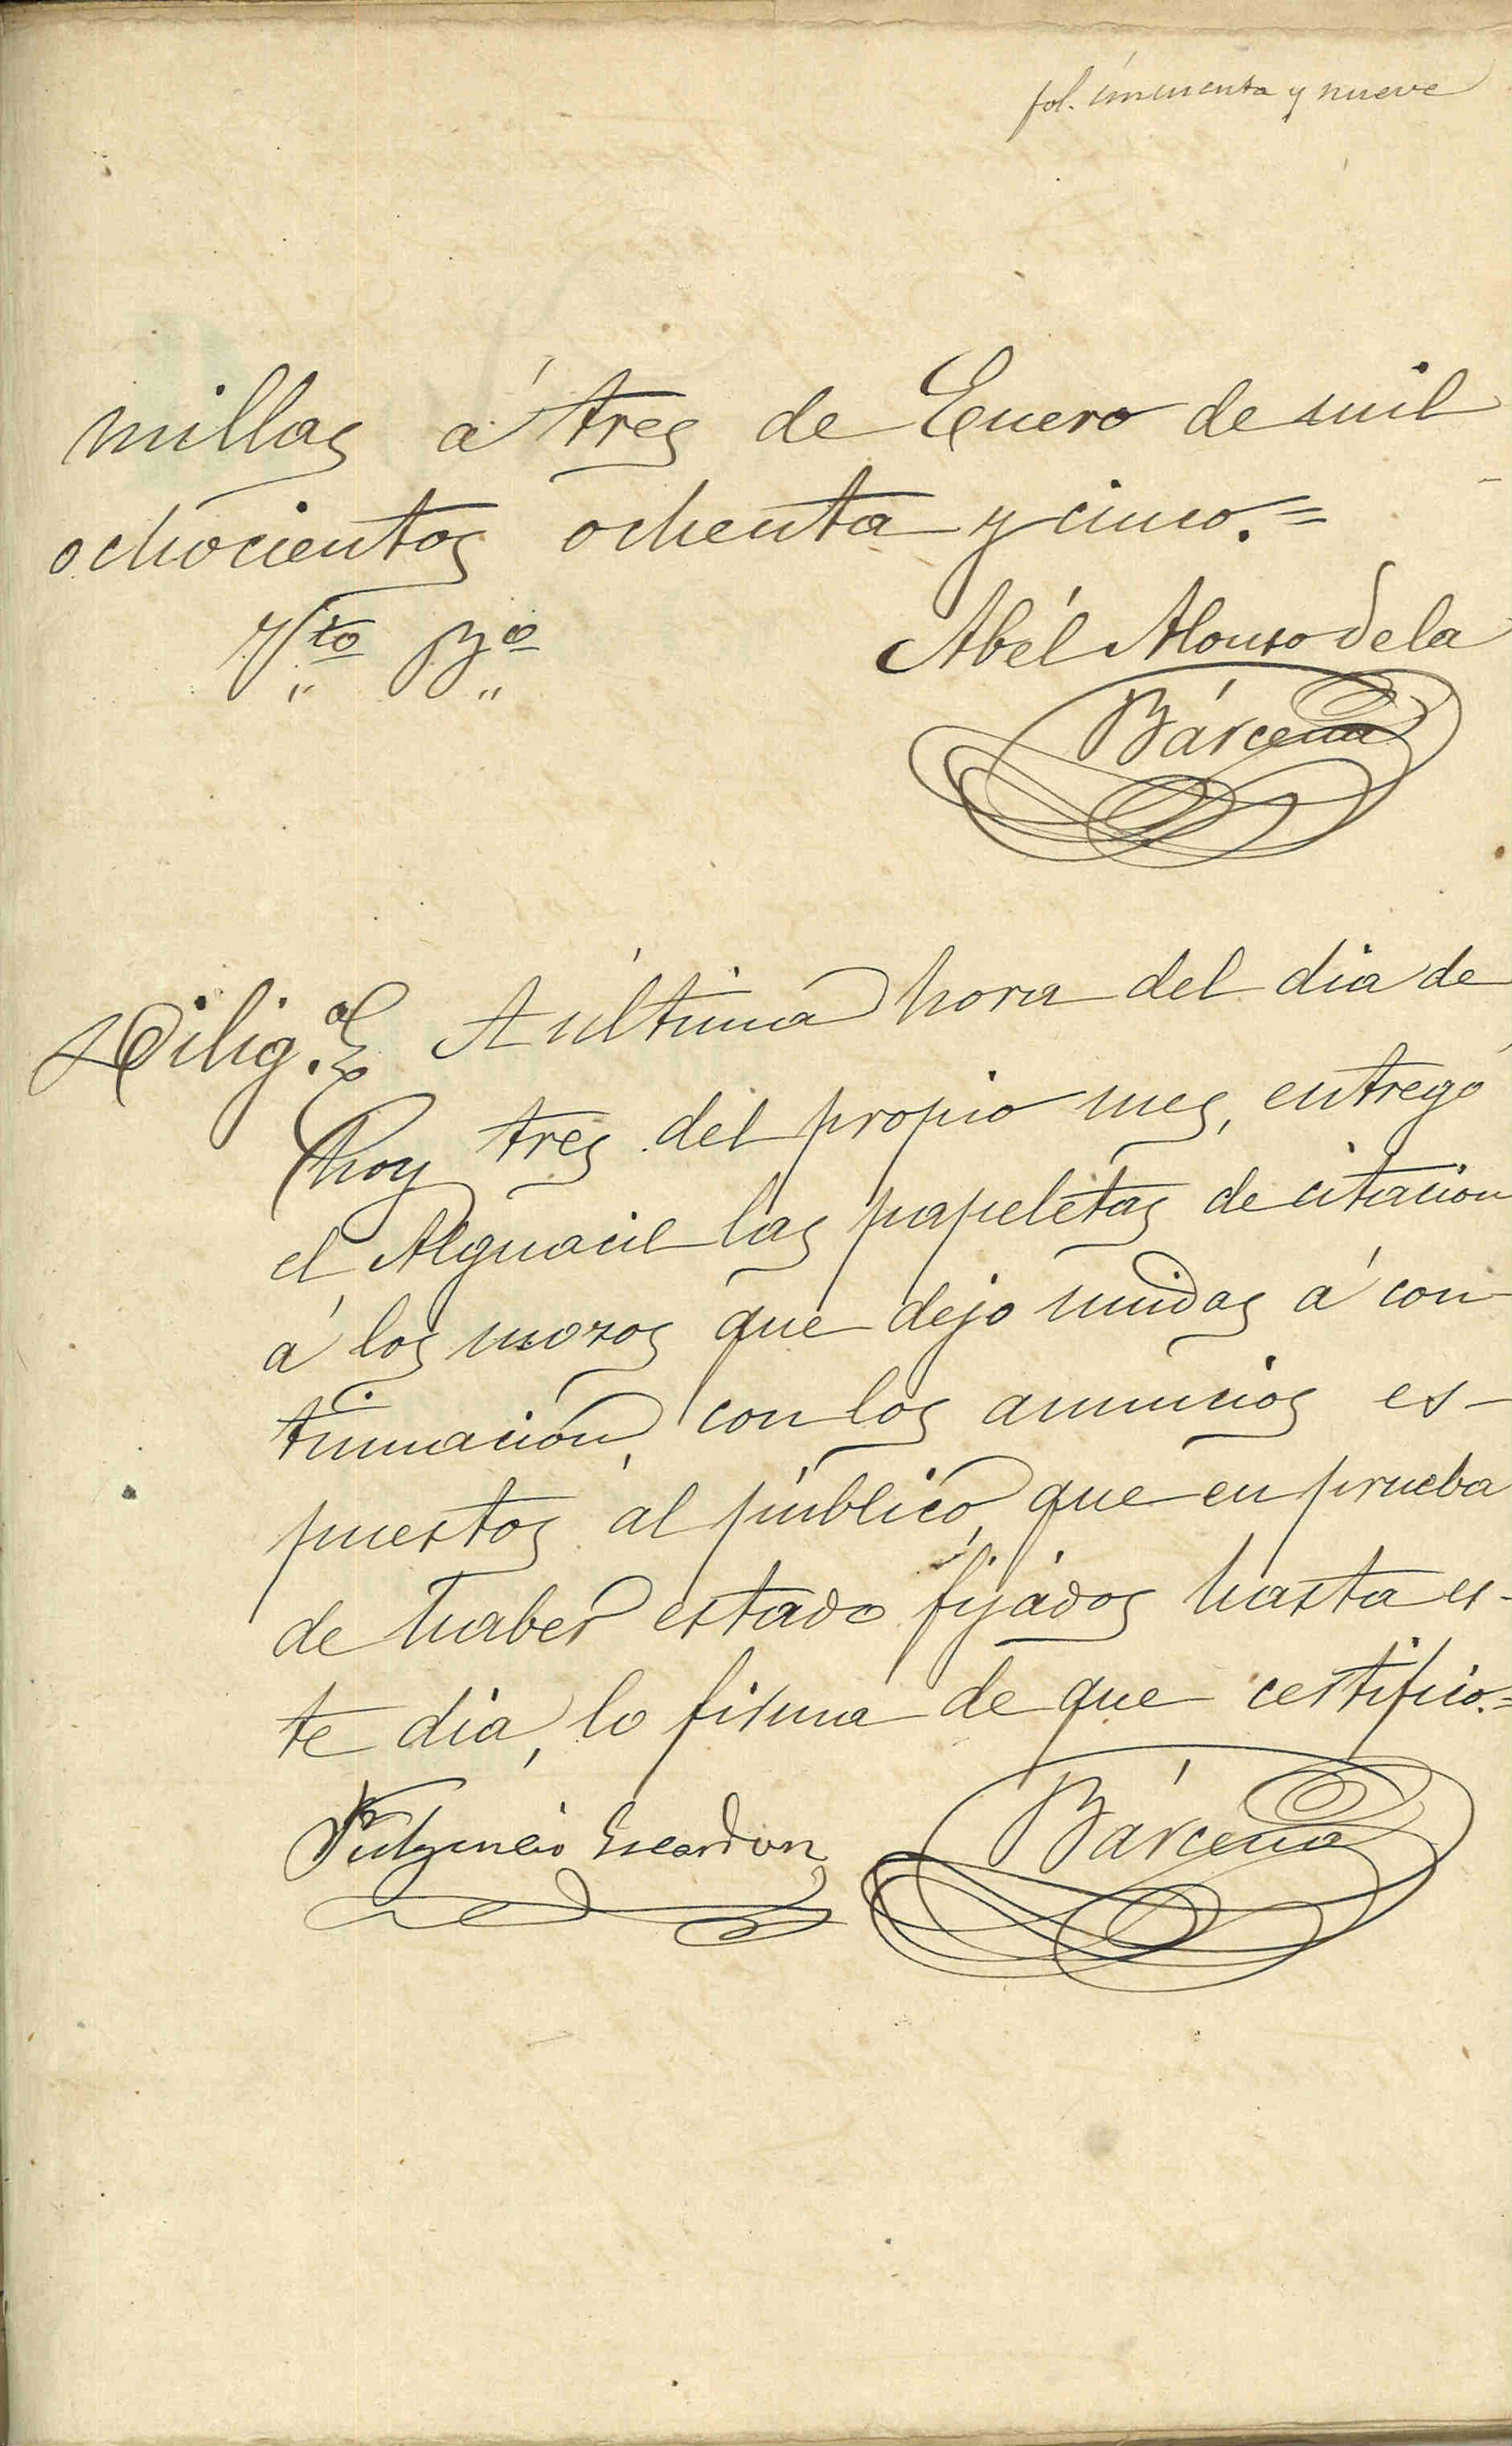 fol. cincuenta y nueve
millas á tres de Enero de mil
ochocientos ochenta y cinco.=
Vto Bo
Abél Alonso de la
Bárcena
Dilig.a A última hora del dia de
hoy tres del propio mes, entregó
el Alguacil las papeletas de citacion
á los mozos que dejo unidas á con
tinuación, con los anuncios es-
puestos al público, que en prueba
de haber estado fijados hasta es-
te dia, lo firma de que certifico.=
Fulgencio Escardon
Bárcena